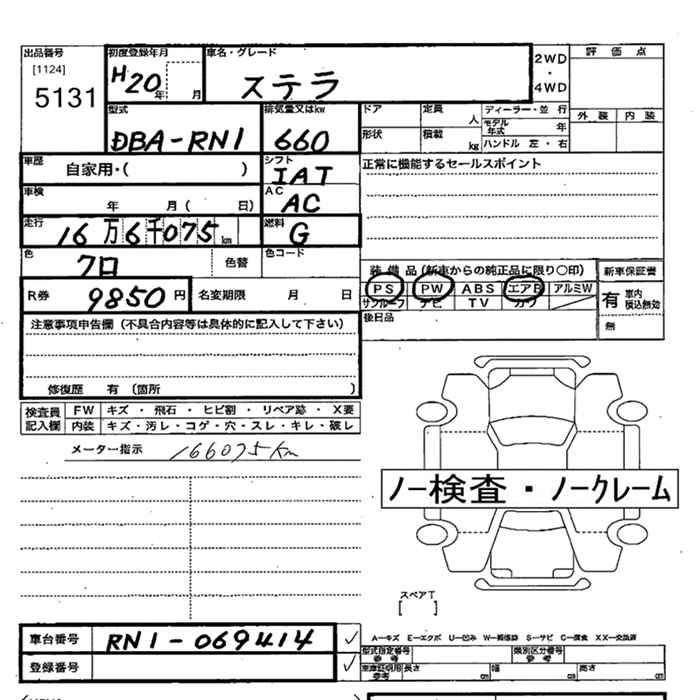 出品番号 初度登録年月 車名・グレード 2WD・4WD 評価点
[1124]
5131 H20年 月 ステラ 外装 内装
型式 排気量又はkw ドア 定員 人 ディーラー・並行
DBA-RN1 660 モデル年式 年
形状 積載 kg ハンドル 左・右
車歴 自家用・( ) シフト IAT 正常に機能するセールスポイント
車検 年 月( 日) AC AC
走行 16万6千075km 燃料 G
色 クロ 色替 色コード 装備品(新車からの純正品に限り○印) 新車保証書
R券 9850円 名変期限 月 日 PS PW ABS エアB アルミW 有 車内積込無効
サンルーフ ナビ TV カワ
注意事項申告欄(不具合内容等は具体的に記入して下さい) 後日品 無
修復歴 有 (箇所 )
検査員記入欄 FW キズ・飛石・ヒビ割・リペア跡・X要
内装 キズ・汚レ・コゲ・穴・スレ・キレ・破レ
メーター指示 166075km
ノー検査・ノークレーム
スペアT
[ ]
車台番号 RN1-069414 ✓ A―キズ E―エクボ U―凹み W―補修跡 S―サビ C―腐食 XX―交換済
型式指定番号 参考 類別区分番号 参考
登録番号 ✓ 車庫証明用参考 長さ cm 幅 cm 高さ cm